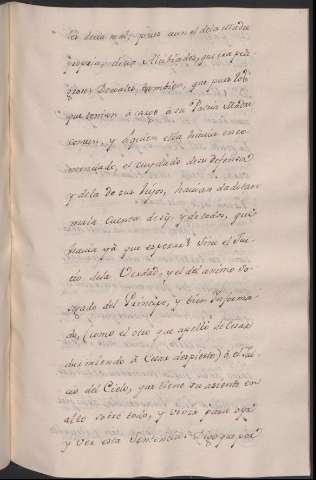 les decia mal, pues aun el dela Madre
propia, decia Alcibiades, que era peli-
groso Dexarles, tambien, que pues los
que tenian à cargo à su Patria Madre
comun, y à quien ella havia enco-
mendado, el cuydado de su defensa
y de la de sus hijos, havian dado tan
mala cuenta de si, y de todos, que
havia yà que esperar? Sino el Jui-
cio de la Verdad, y el del animo so-
segado del Principe, y bien Informa-
do, (como el otro que apelló de Cesar
durmiendo à Cesar despierto) ò, el Jui-
cio del Cielo, que tiene su asiento en
alto sobre todo, y vivir para oyr
y ver esta Sentencia. Digo que por